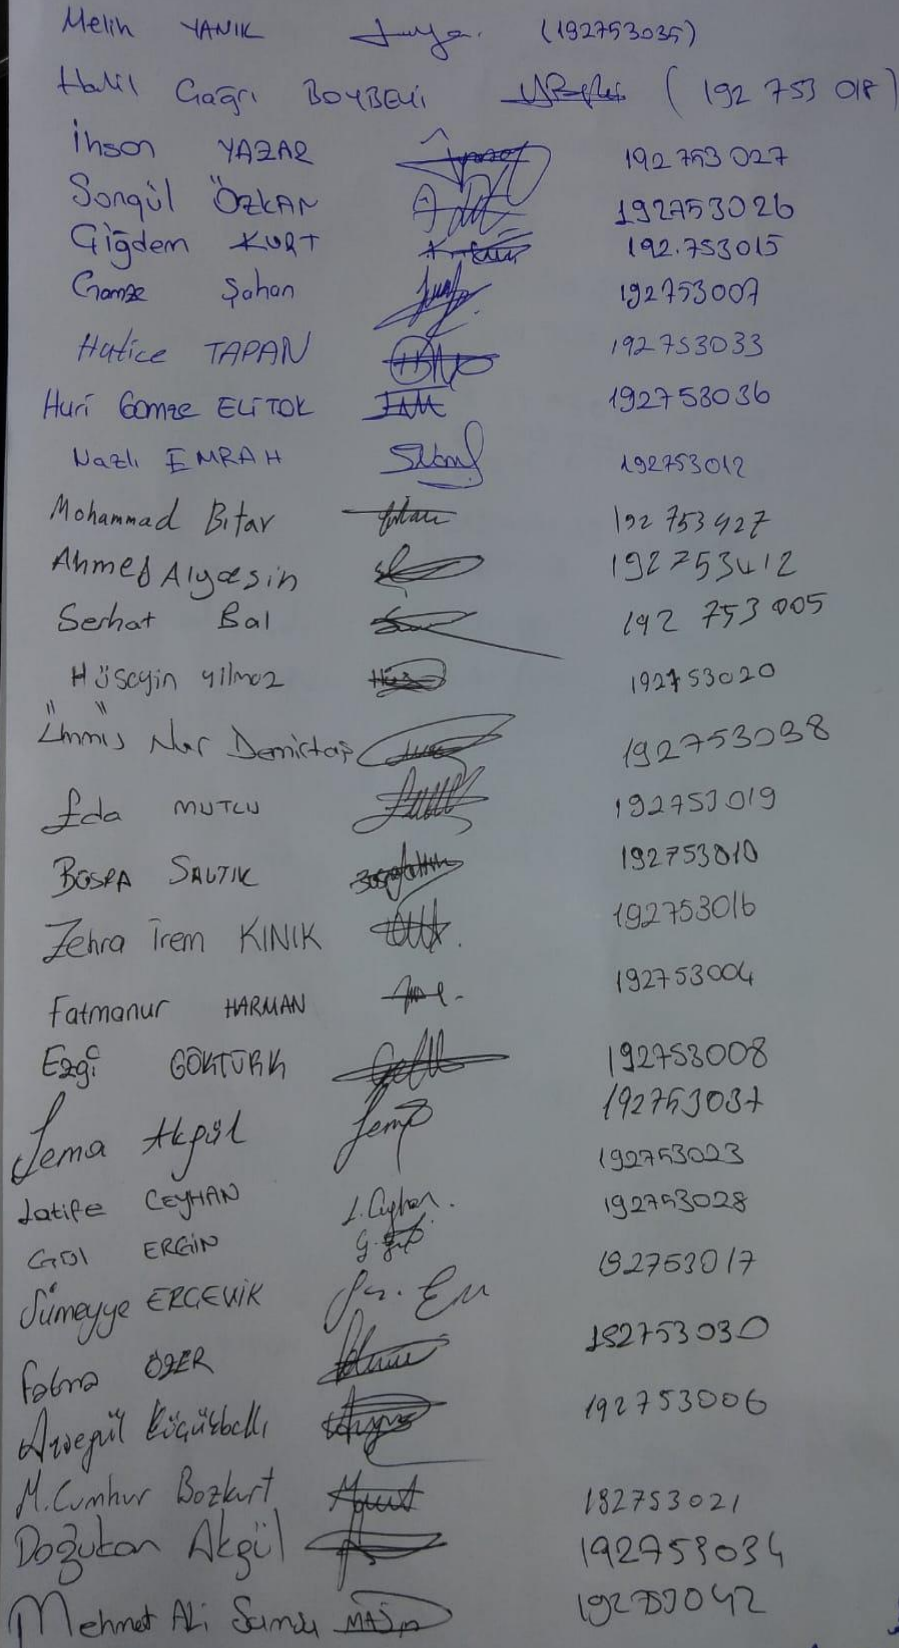 Melih YANIK (192753035)
Halil Çağrı BOYBEYİ (192 753 018)
İhson YAZAR 192 753 027
Songül ÖZKAN 192753026
Çiğdem KURT 192.753015
Gamze Şahan 192753007
Hatice TAPAN 192753033
Huri Gamze ELİTOK 192753036
Nazlı EMRAH 192753012
Mohammad Bıtar 192 753427
Ahmed Alyasin 192753412
Serhat Bal 192 753 005
Hüseyin yılmaz 192753020
Ümmü Nur Demirtaş 192753038
Eda MUTLU 192753019
BÜŞRA SALTIK 192753010
Zehra İrem KINIK 192753016
Fatmanur HARMAN 192753004
Ezgi GÖKTÜRK 192753008
Sema Akgül 192753037
Latife CEYHAN L.Ceyhan. 192753023
Gül ERGİN 192753028
Sümeyye ERCEVİK 192753017
Fatma ÖZER 192753030
Ayşegül Küçükballı 192753006
M.Cumhur Bozkurt 192753021
Doğukan Akgül 192753034
Mehmet Ali 192753042